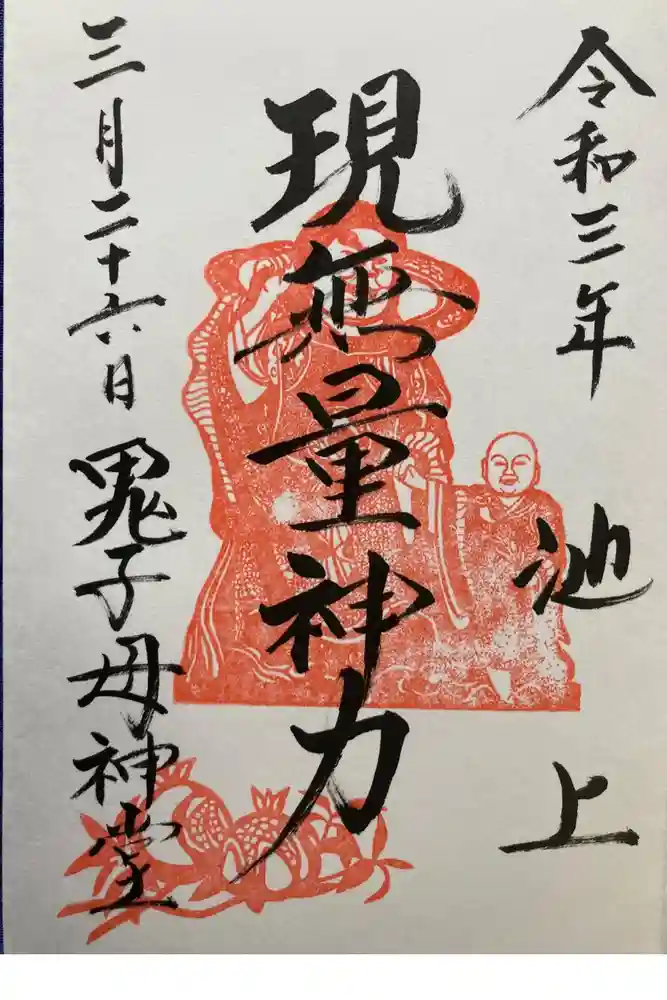 令和三年
池上
現無量神力
三月二十六日
鬼子母神堂